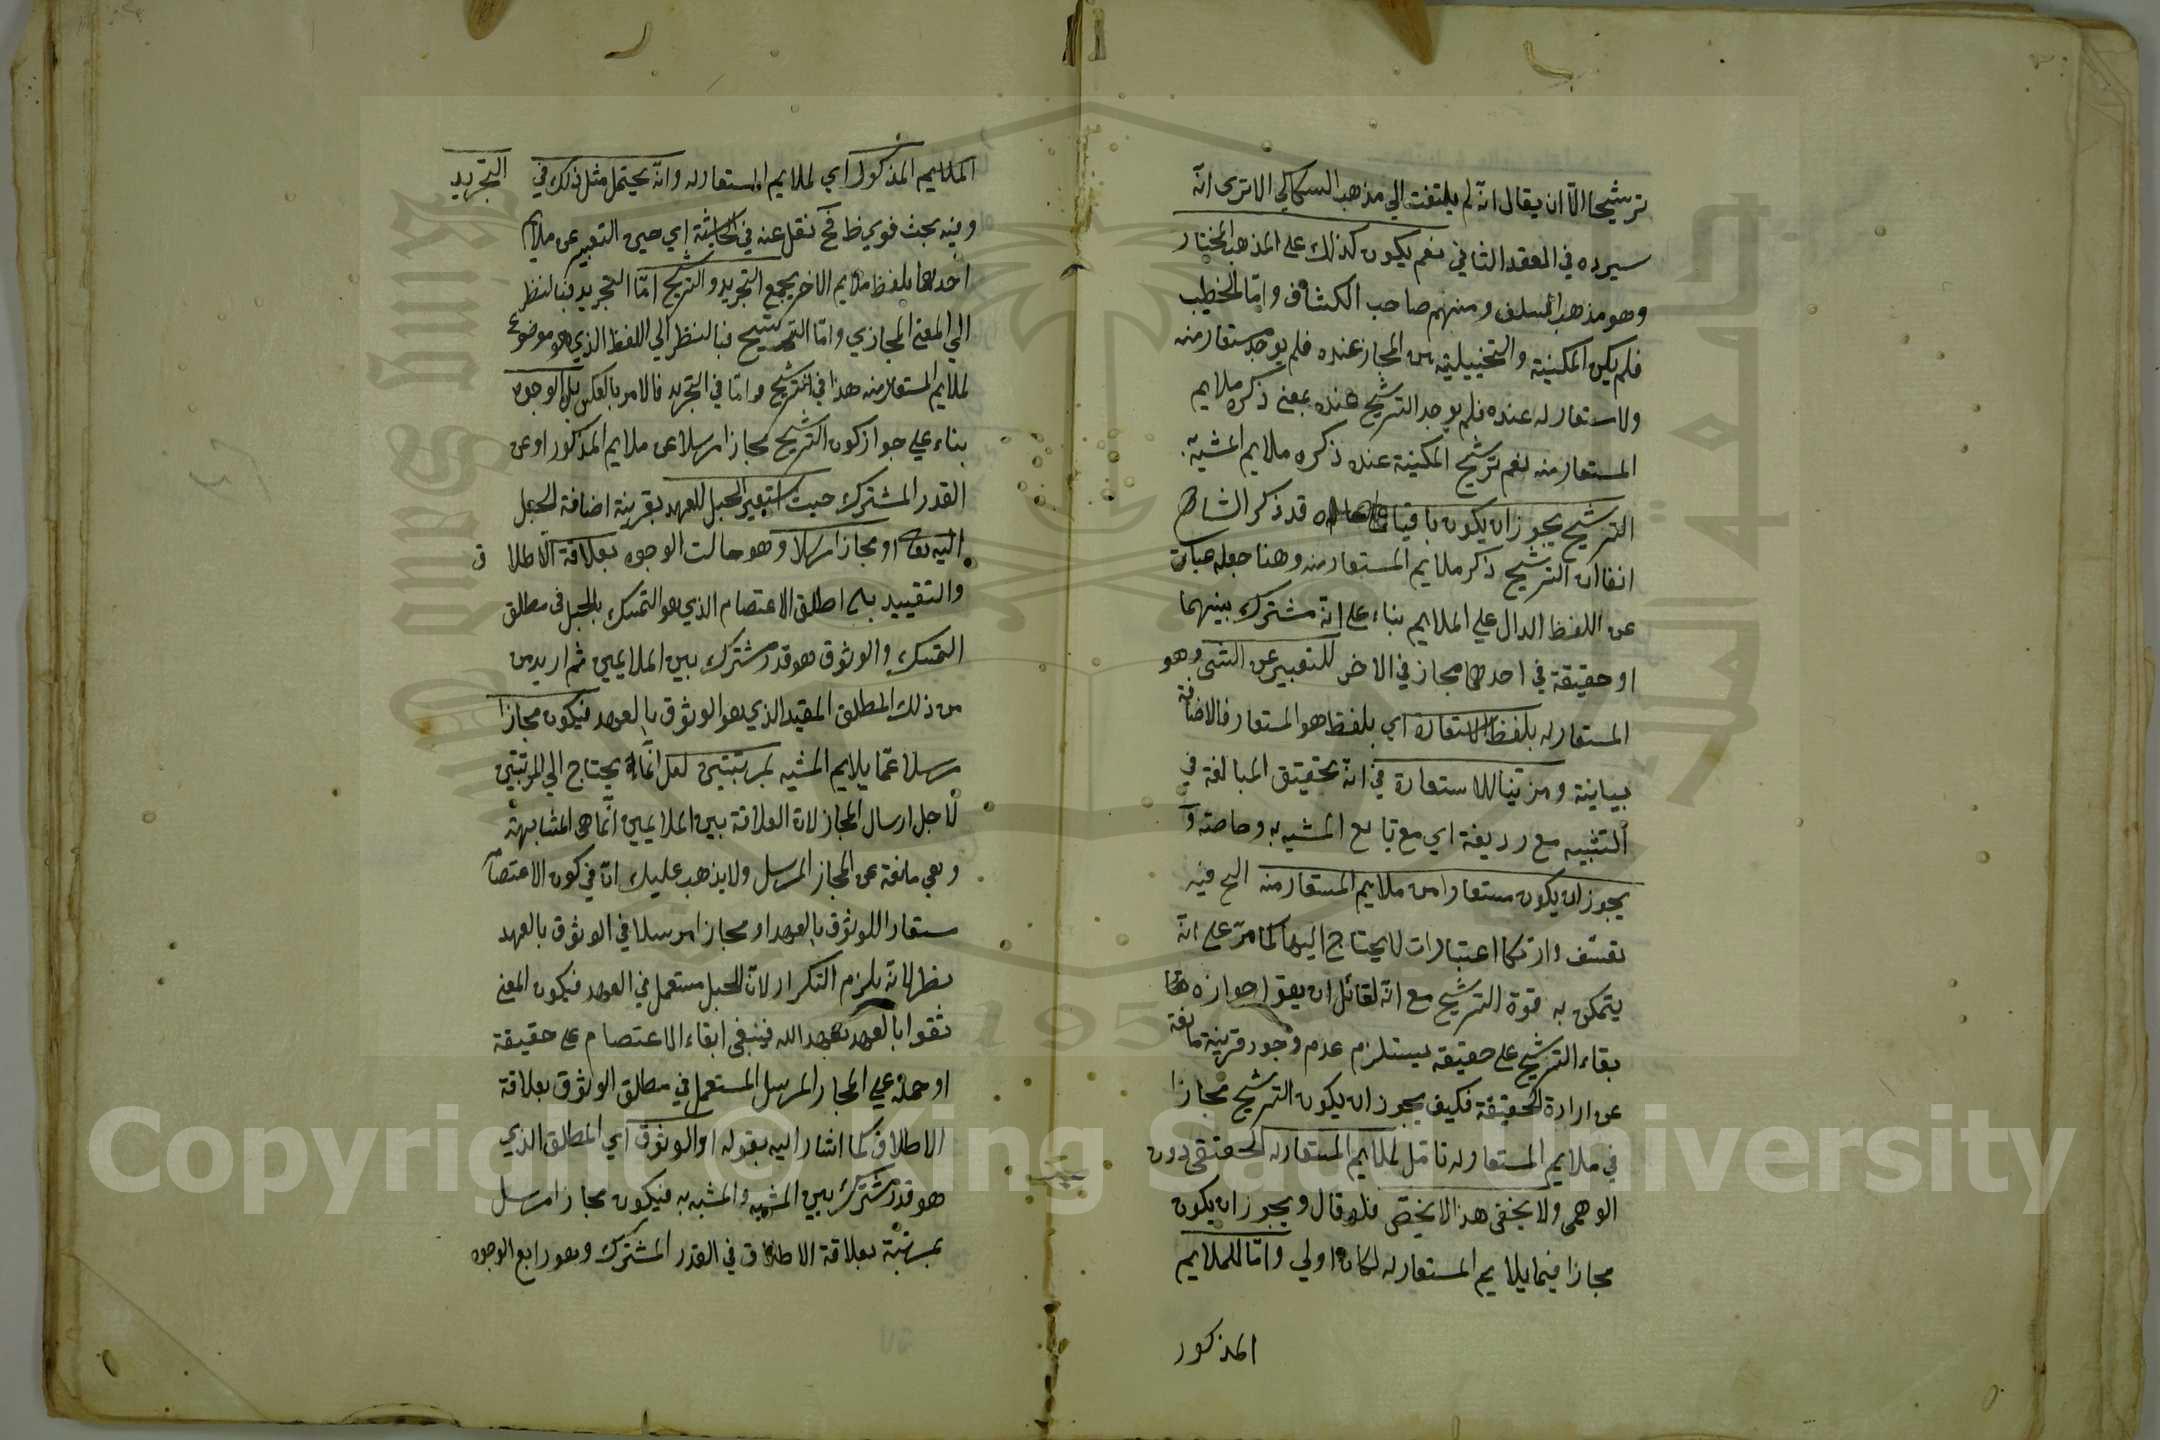 ترشيحا الا ان يقال انه لم يلتفت الي مذهب السكاكي الا ترى انه
سيرده في العقد الثاني نعم يكون كذلك على المذهب المختار
وهو مذهب السلف ومنهم صاحب الكشاف واما الخطيب
فلم يكن المكنية والتخييلية من المجاز عنده فلم يوجد مستعار منه
ولا مستعار له عنده فلم يوجد الترشيح عنده بمعنى ذكره ملايم
المستعار منه نعم ترشيح المكنية عنده ذكره ملايم المشبه به
الترشيح يجوز ان يكون باقيا قد ذكر الشارح
انفا ان الترشيح ذكر ملايم المستعار منه وهنا جعله عبارة
عن اللفظ الدال على الملايم بناء على انه مشترك بينهما
او حقيقة في احدهما مجاز في الاخر للتعبير عن الشيء وهو
المستعار له بلفظ الاستعارة اي بلفظ هو المستعار فالاضافة
بيانية ومرتبنا للاستعارة في انه تحقيق المبالغة في
التشبيه مع رديفة اي مع تابع المشبه به وخاصته و
يجوز ان يكون مستعارا من ملايم المستعار منه الخ فيه
تعسف وارتكاب اعتبارات لا يحتاج اليها كما مر على انه
يتمكن به قوة الترشيح مع انه لقائل ان يقول جوازه
بقاء الترشيح على حقيقته يستلزم عدم وجود قرينة مانعة
عن ارادة الحقيقة فكيف يجوز ان يكون الترشيح مجازا
في ملايم المستعار له تامل لملايم المستعار له الحقيقي دون
الوهمي ولا يخفى هذا لا يختص فلو قال ويجوز ان يكون
مجازا فيما يلايم المستعار له لكان اولي واما للملايم
المذكور
الملايم المذكور اي لملايم المستعار له وانه يحتمل مثل ذلك في التجريد
وفيه بحث قوي ظ فح نقل عنه في الحاشية اي حين التعبير عن ملايم
احدهما بلفظ ملايم الاخر يجمع التجريد والترشيح اما التجريد فبالنظر
الي المعنى المجازي واما الترشيح فبالنظر الي اللفظ الذي هو موضوع
لملايم المستعار منه هذا في الترشيح واما في التجريد فالامر بالعكس بل الوجوه
بناء على جواز كون الترشيح مجازا مرسلا عن ملايم المذكور او عن
القدر المشترك حيث استعير الحبل للعهد بقرينة اضافة الحبل
اليه تعالى او مجازا مرسلا وهو ثالث الوجوه بعلاقة الاطلاق
والتقييد بان اطلق الاعتصام الذي هو التمسك بالحبل في مطلق
التمسك والوثوق هو قدر مشترك بين الملايمين ثم اريد من
من ذلك المطلق المقيد الذي هو الوثوق بالعهد فيكون مجازا
مرسلا عما يلايم المشبه بمرتبتين لعل انما يحتاج الي المرتبتين
لاجل ارسال المجاز لان العلاقة بين الملايمين انما هي المشابهة
وهي مانعة عن المجاز المرسل ولا يذهب عليك ان في كون الاعتصام
مستعارا للوثوق بالعهد او مجازا مرسلا في الوثوق بالعهد
نظرا لانه يلزم التكرار لان الحبل مستعمل في العهد فيكون المعنى
ثقوا بالعهد بعهد الله فينبغي ابقاء الاعتصام على حقيقة
او حمله على المجاز المرسل المستعمل في مطلق الوثوق بعلاقة
الاطلاق كما اشار اليه بقوله او الوثوق اي المطلق الذي
هو قدر مشترك بين المشبه والمشبه به فيكون مجازا مرسل
بمرتبة بعلاقة الاطلاق في القدر المشترك وهو رابع الوجوه
Copyright © King Saud University